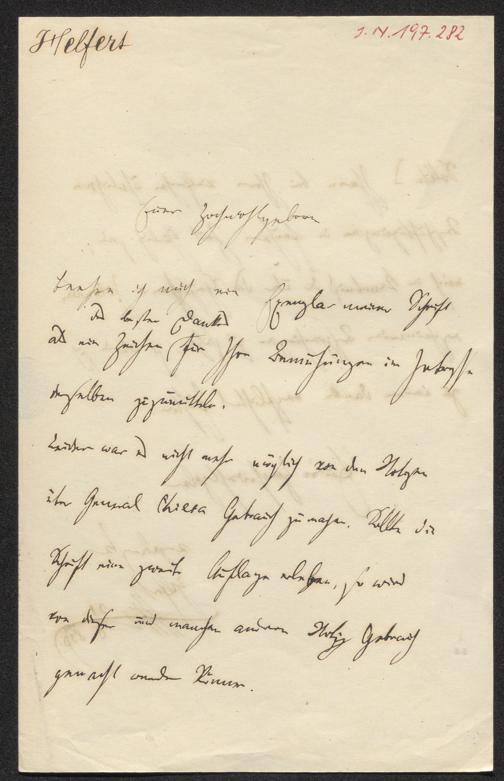 Helfert
I.N. 197.282
Euer Hochwohlgeboren
beehre ich mich ein Exemplar meiner Schrift
des besten Dankes
als ein Zeichen für Ihre Bemühungen im Interesse
derselben zu
Leider war es nicht mehr möglich von den Notizen
über General Chiesa Gebrauch zu machen. Sollte die
Schrift eine zweite Auflage erleben, so wird
von dieser und manchen anderen Notiz Gebrauch
gemacht werden können.